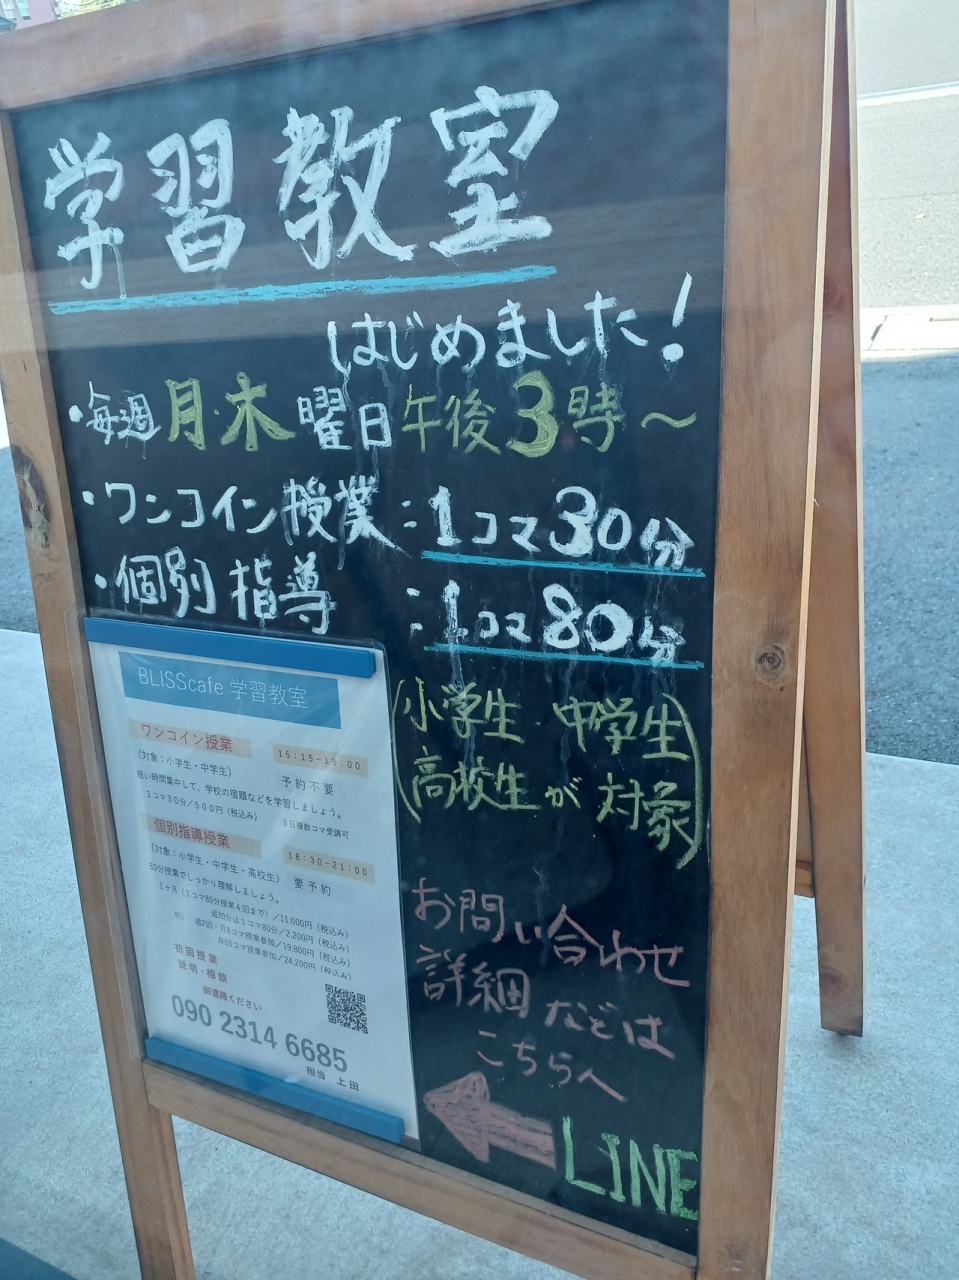 学習教室
はじめました！
・毎週月・木曜日午後3時～
・ワンコイン授業：1コマ30分
・個別指導：1コマ80分
(小学生 中学生
高校生が対象)
BLISScafe 学習教室
ワンコイン授業 15:15-18:00
(対象：小学生・中学生) 予約不要
短い時間集中して、学校の宿題などを学習しましょう。
1コマ30分／500円（税込み） 1日複数コマ受講可
個別指導授業 18:30-21:00
(対象：小学生・中学生・高校生) 要予約
80分授業でしっかり理解しましょう。
1ヶ月（1コマ80分授業4回まで）／11,000円（税込み）
追加分は1コマ80分／2,200円（税込み）
例） 週2回・月8コマ授業参加／19,800円（税込み）
月10コマ授業参加／24,200円（税込み）
初回授業
説明・相談
御連絡ください
090 2314 6685
担当 上田
お問い合わせ
詳細などは
こちらへ
LINE